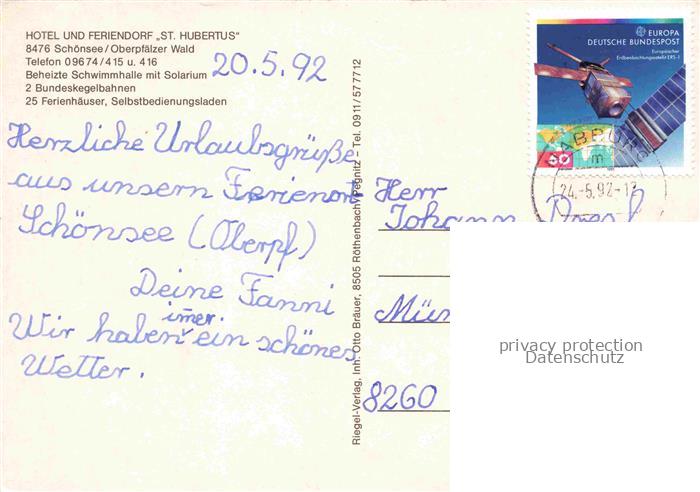 HOTEL UND FERIENDORF „ST. HUBERTUS"
8476 Schönsee/Oberpfälzer Wald
Telefon 09674/415 u. 416
Beheizte Schwimmhalle mit Solarium
2 Bundeskegelbahnen
25 Ferienhäuser, Selbstbedienungsladen
20.5.92
Herzliche Urlaubsgrüße
aus unsern Ferienort
Schönsee (Oberpf)
Deine Fanni
Wir haben imer. ein schönes
Wetter.
Riegel-Verlag, Inh. Otto Bräuer, 8505 Röthenbach/Pegnitz - Tel. 0911/577712
EUROPA
DEUTSCHE BUNDESPOST
Europäischer
Erdbeobachtungssatellit ERS-1
60
24.-5.92-17
Herr
Johann
8260
privacy protection
Datenschutz